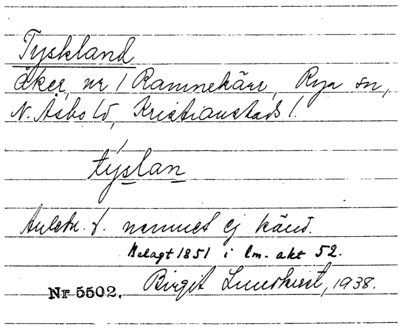 Tyskland
åker, nr 1 Ramnekärr, Rya sn,
N. Åsbo hd, Kristianstads l.
týslan
Anledn. t. namnet ej känd.
Belagt 1851 i lm. akt 52.
Nr 5502. Birgit Lundkvist, 1938.